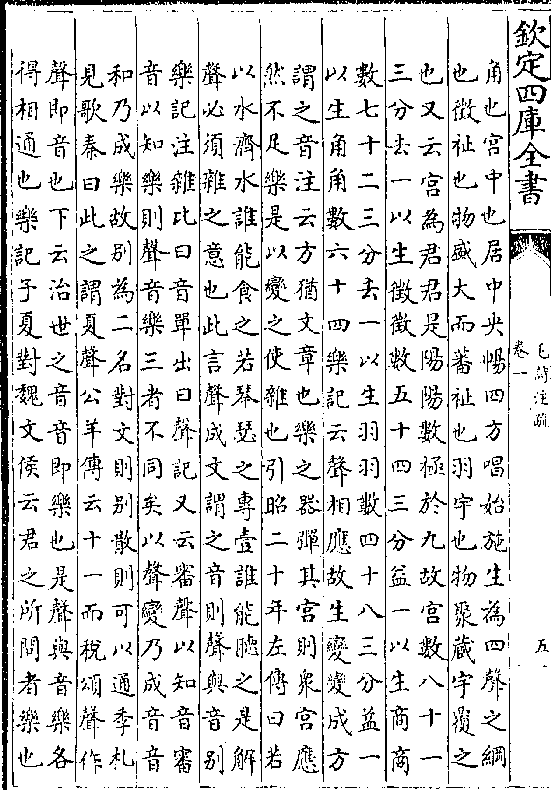 欽定四庫全書
毛詩注疏
卷一
五
角也宫中也居中央暢四方唱始施生為四聲之綱
也徵祉也物盛大而蕃祉也羽宇也物聚藏宇覆之
也又云宫為君君是陽陽數極於九故宫數八十一
三分去一以生徵徵數五十四三分益一以生商商
數七十二三分去一以生羽羽數四十八三分益一
以生角角數六十四樂記云聲相應故生變變成方
謂之音注云方猶文章也樂之器彈其宫則衆宫應
然不足樂是以變之使雜也引昭二十年左傳曰若
以水濟水誰能食之若琴瑟之專壹誰能聽之是解
聲必須雜之意也此言聲成文謂之音則聲與音别
樂記注雜比曰音單出曰聲記又云審聲以知音審
音以知樂則聲音樂三者不同矣以聲變乃成音音
和乃成樂故别為二名對文則别散則可以通季札
見歌秦曰此之謂夏聲公羊傳云十一而税頌聲作
聲即音也下云治世之音音即樂也是聲與音樂各
得相通也樂記子夏對魏文侯云君之所問者樂也